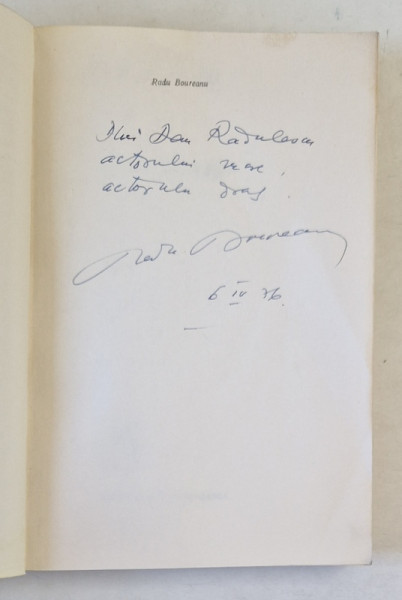 Radu Boureanu
Dlui Dan Radulescu
actorului mare,
actorului drag.
Radu Boureanu
6 IV 76.